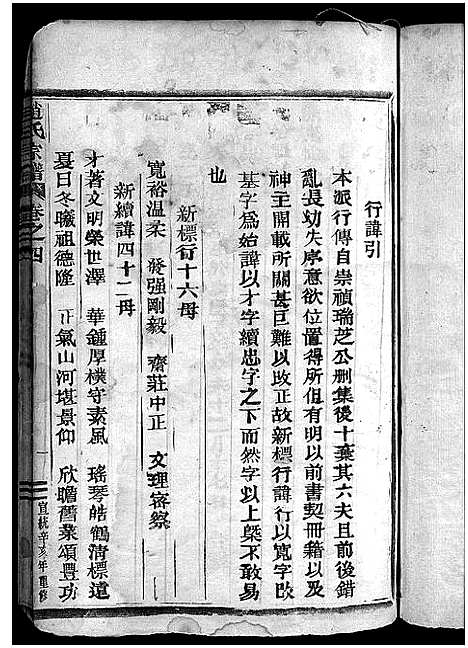 行諱引
本派行傳自崇禎瑞芝公刪集後十棄其六夫且前後錯
亂長幼失序意欲位置得所但有明以前書契冊籍以及
神主開載所關甚巨難以改正故新標行諱行以寬字改
基字為始諱以才字續忠字之下而然字以上槩不敢易
也
新標行十六母
寬裕温柔 發强剛毅 齋莊中正 文理密察
新續諱四十二母
才著文明榮世澤 華鍾厚樸守素風 瑤琴皓鶴清標遠
夏日冬曦祖德隆 正氣山河堪景仰 欣瞻舊業頌豐功
趙氏宗譜 卷之四
一
宣統辛亥年重修